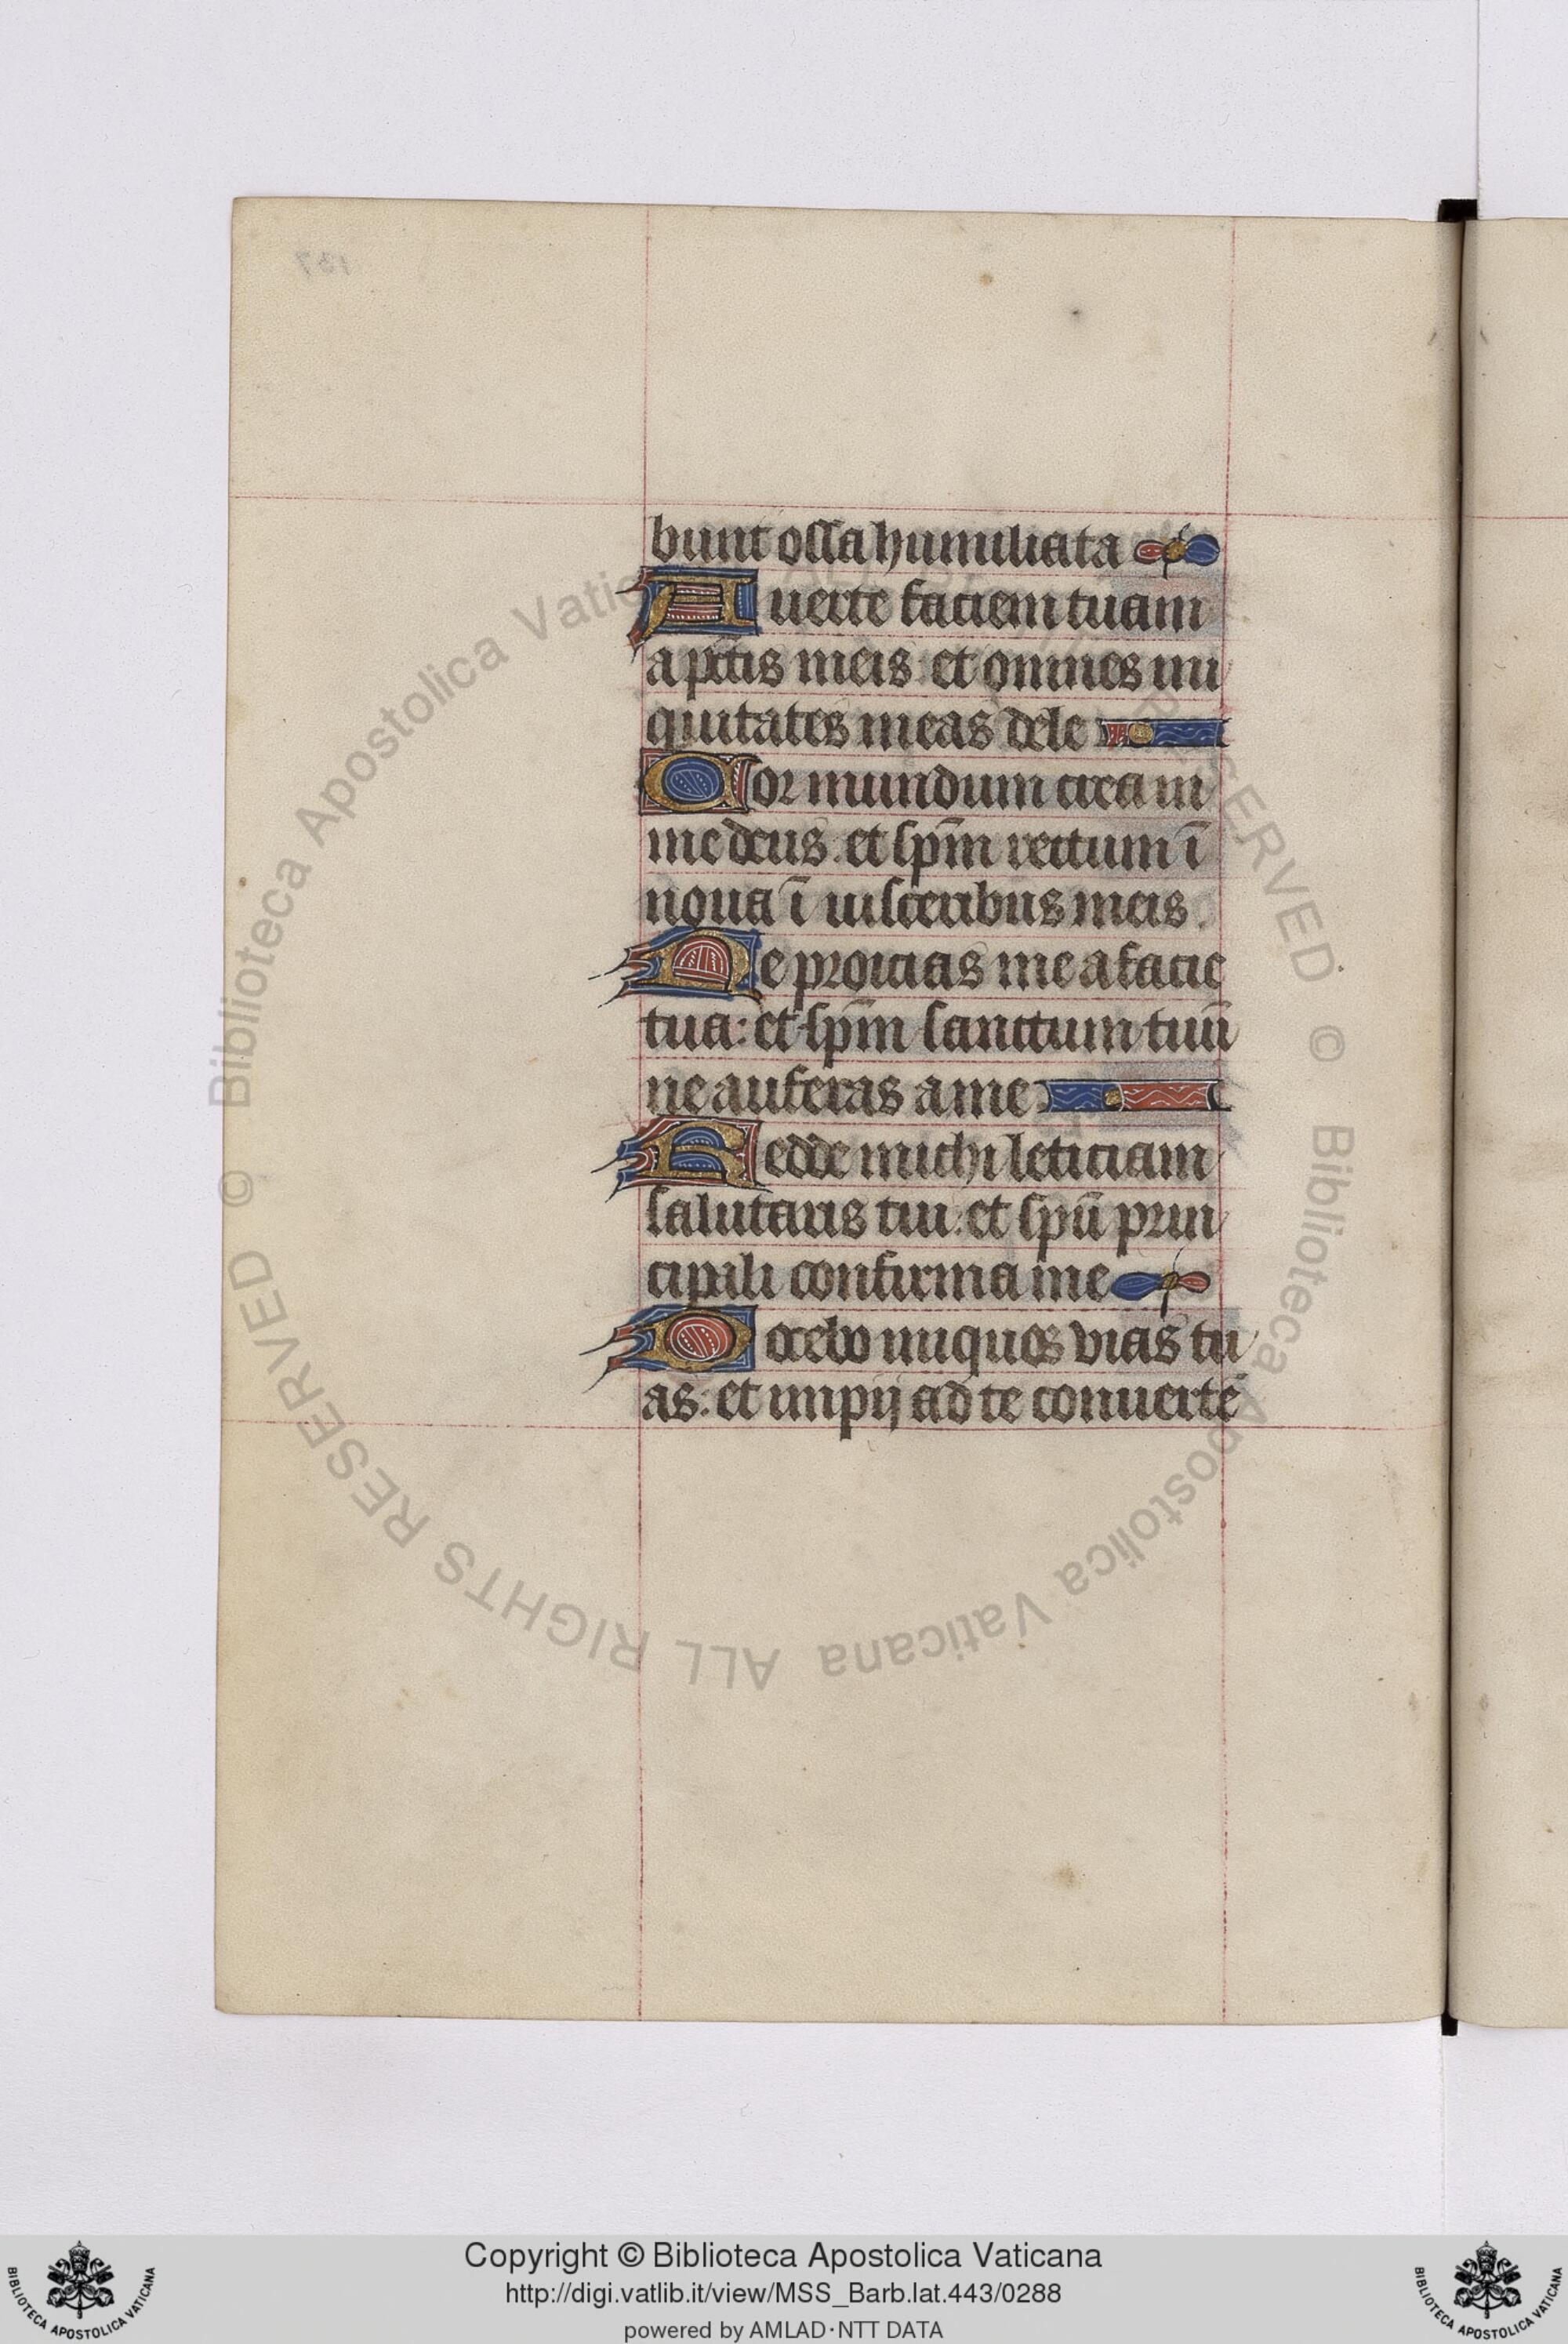 bunt ossa humiliata
Auerte faciem tuam
a pctis meis: et omnes ini
quitates meas dele
Cor mundum crea in
me deus: et spm̄ rectum ī
noua ī uisceribus meis.
Ne proicias me a facie
tua: et spm̄ sanctum tuū
ne auferas a me
Redde michi leticiam
salutaris tui: et spū prin
cipali confirma me
Docebo iniquos vias tu
as: et impij ad te conuertē
© Biblioteca Apostolica Vaticana ALL RIGHTS RESERVED © Biblioteca Apostolica Vaticana ALL RIGHTS RESERVED
Copyright © Biblioteca Apostolica Vaticana
http://digi.vatlib.it/view/MSS_Barb.lat.443/0288
powered by AMLAD·NTT DATA
BIBLIOTECA APOSTOLICA VATICANA
BIBLIOTECA APOSTOLICA VATICANA